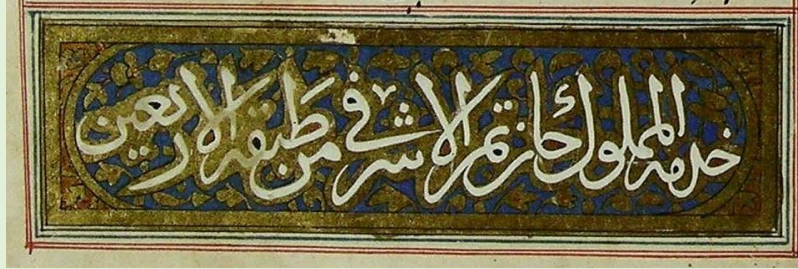 خدمة المملوك جانتمر الاشرفي من طبقة الاربعين